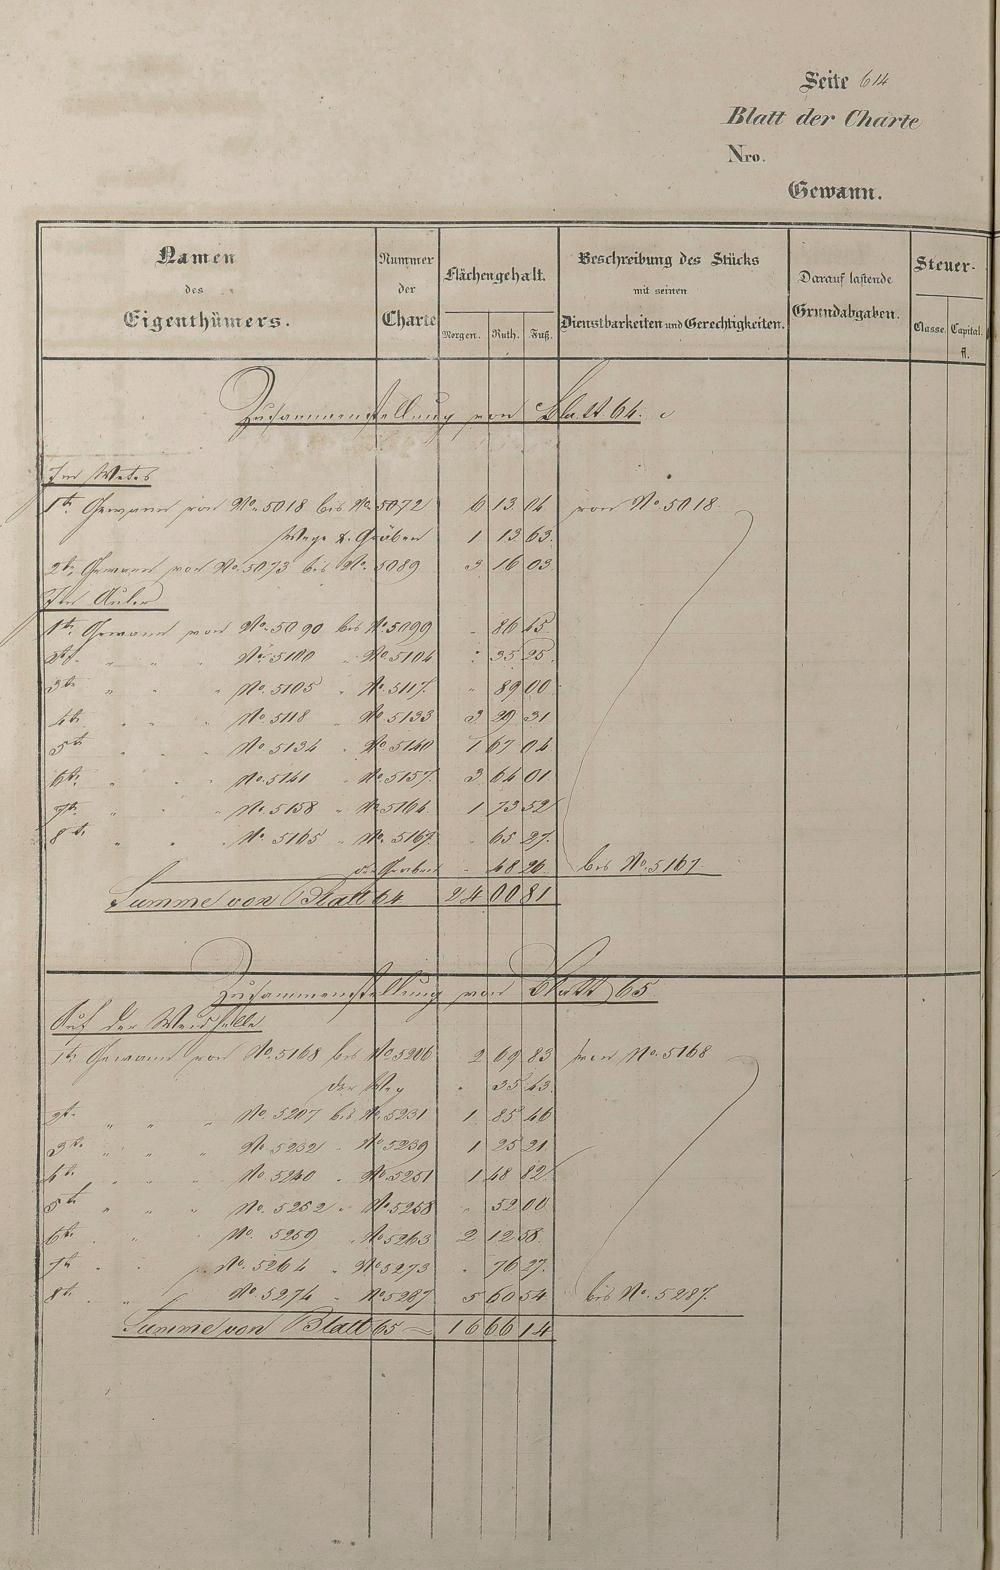 Seite 614
Blatt der Charte
Nro.
Gewann.
Namen des Eigenthümers.
Nummer der Charte
Flächengehalt.
Morgen. Ruth. Fuß.
Beschreibung des Stücks mit seinen Dienstbarkeiten und Gerechtigkeiten.
Darauf lastende Grundabgaben.
Steuer-
Classe. Capital. fl.
Zusammenstellung von Blatt 64.
1te Gewann von No. 5018 bis No. 5072 6 13 04 von No. 5018
Wege & Gräben 1 13 63
2te Gewann von No. 5073 bis No. 5089 3 16 03
1te Gewann von No. 5090 bis No. 5099 - 86 45
2te " " " No. 5100 " No. 5104 - 35 25
3te " " " No. 5105 " No. 5117 " 89 00
4te " " " No. 5118 " No. 5133 3 29 31
5te " " " No. 5134 " No. 5140 1 67 04
6te " " " No. 5141 " No. 5157 3 64 01
7te " " " No. 5158 " No. 5164 1 73 52
8te " " " No. 5165 " No. 5167 - 65 27
der Graben - 48 26 bis No. 5167
Summe von Blatt 64 24 00 81
Zusammenstellung von Blatt 65
Auf der
1te Gewann von No. 5168 bis No. 5206 2 69 83 von No. 5168
der Weg - 35 43
2te " " " No. 5207 bis No. 5231 1 85 46
3te " " " No. 5232 " No. 5239 1 25 21
4te " " " No. 5240 " No. 5251 1 48 82
5te " " " No. 5252 " No. 5258 - 52 00
6te " " No. 5259 " No. 5263 2 12 58
7te " " No. 5264 " No. 5273 - 76 27
8te " " No. 5274 " No. 5287 5 60 54 bis No. 5287
Summe von Blatt 65 16 66 14